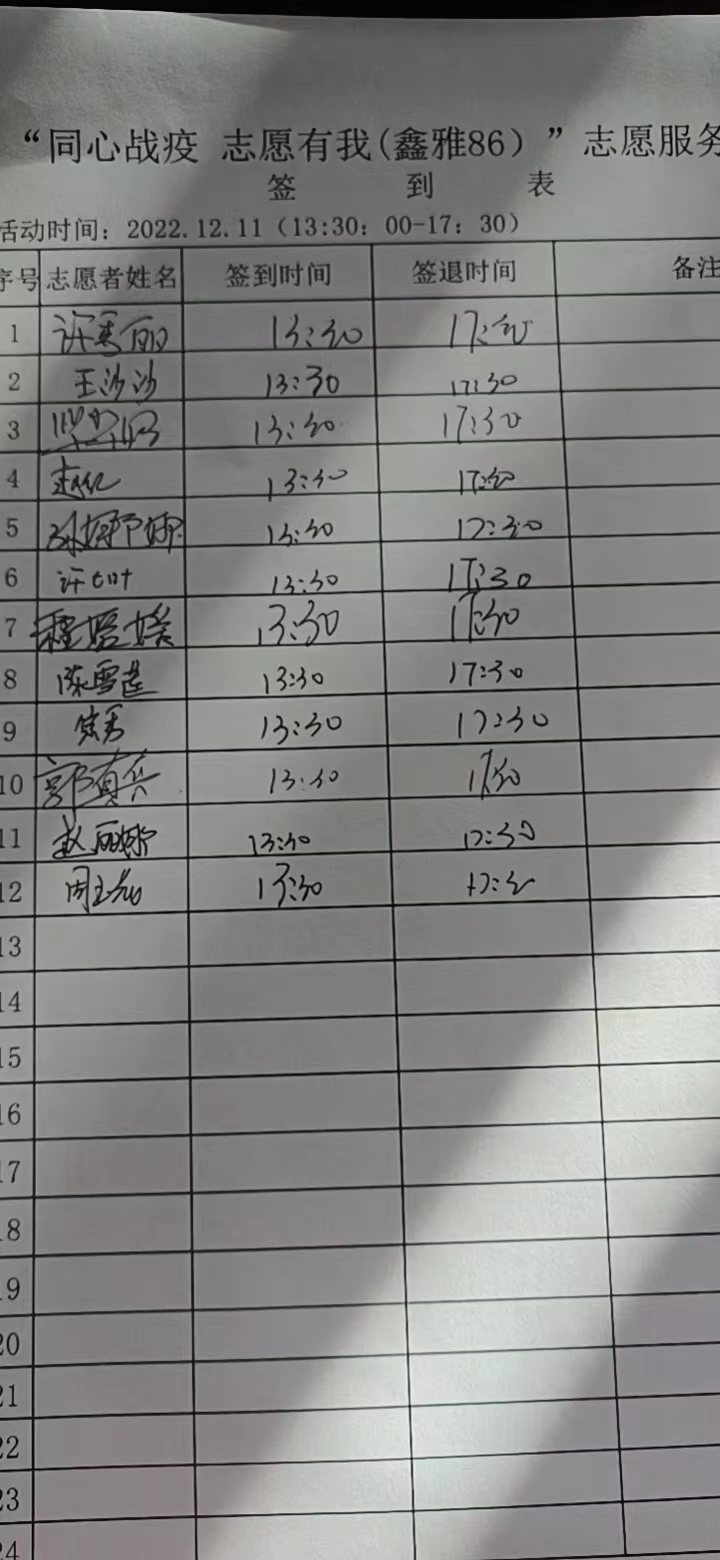 “同心战疫 志愿有我(鑫雅86)”志愿服务
签 到 表
活动时间: 2022.12.11 (13:30: 00-17: 30)
序号 志愿者姓名 签到时间 签退时间 备注
1 许秀丽 13:30 17:30
2 王沙沙 13:30 17:30
3 13:30 17:30
4 13:30 17:30
5 13:30 17:30
6 许 13:30 17:30
7 程 13:30 17:30
8 陈雪莲 13:30 17:30
9 13:30 17:30
10 郭真真 13:30 17:30
11 赵丽娜 13:30 17:30
12 周 13:30 17:30
13
14
15
16
17
18
19
20
21
22
23
24